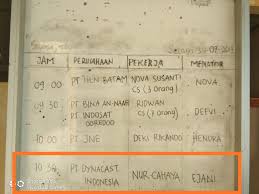 JAM PERUSAHAAN PEKERJA MENATOR
09 00 PT IHN BATAM NOVA SUSANTI NOVA
CS (3 orang)
09 30 PT BINA AN-NAAR RIDWAN DEFVI
PT INDOSAT CS (3 orang)
OOREDOO
10 00 PT JNE DEKI RIKANDO HENDRA
10 30 PT DYNACAST NUR CAHAYA EJANI
INDONESIA